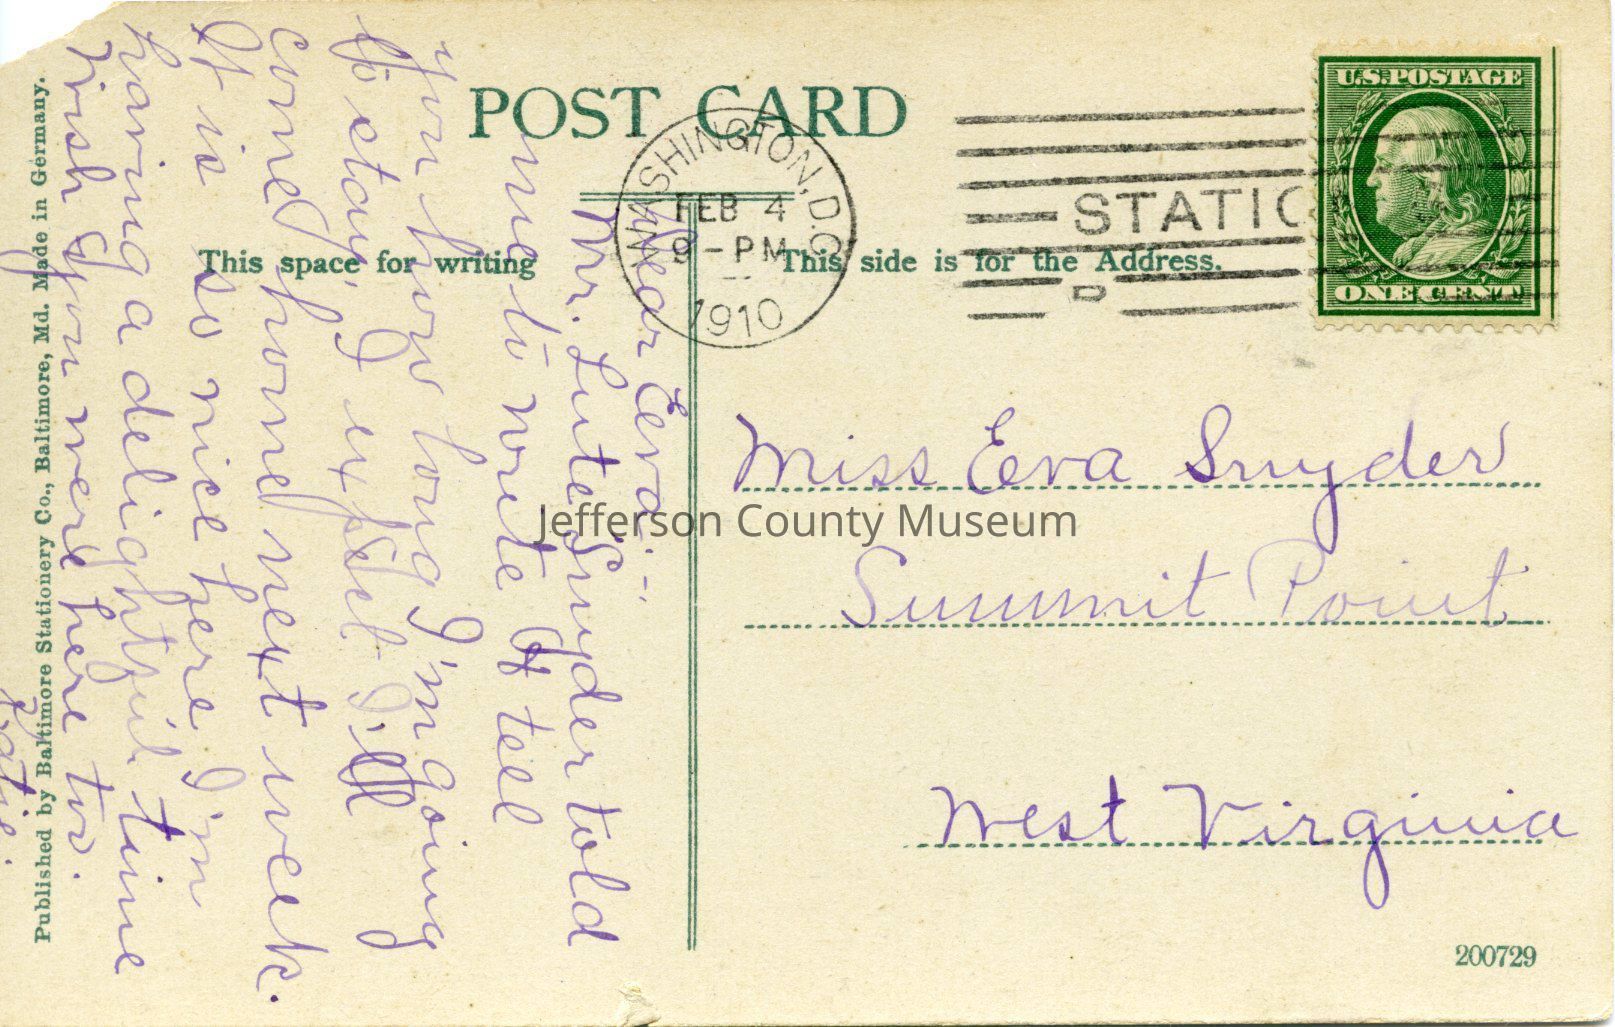 POST CARD
WASHINGTON, D.C.
FEB 4
9-PM
1910
STATIO
D
U.S. POSTAGE
ONE CENT
This space for writing
This side is for the Address.
Dear Eva:-
Mr. Lute Snyder told
me to write & tell
you how long I'm going
to stay, I expect I'll
come home next week.
It is so nice here I'm
having a delightful time
Wish you were here too.
Katie.
Miss Eva Snyder
Summit Point
West Virginia
Published by Baltimore Stationery Co., Baltimore, Md. Made in Germany.
200729
Jefferson County Museum